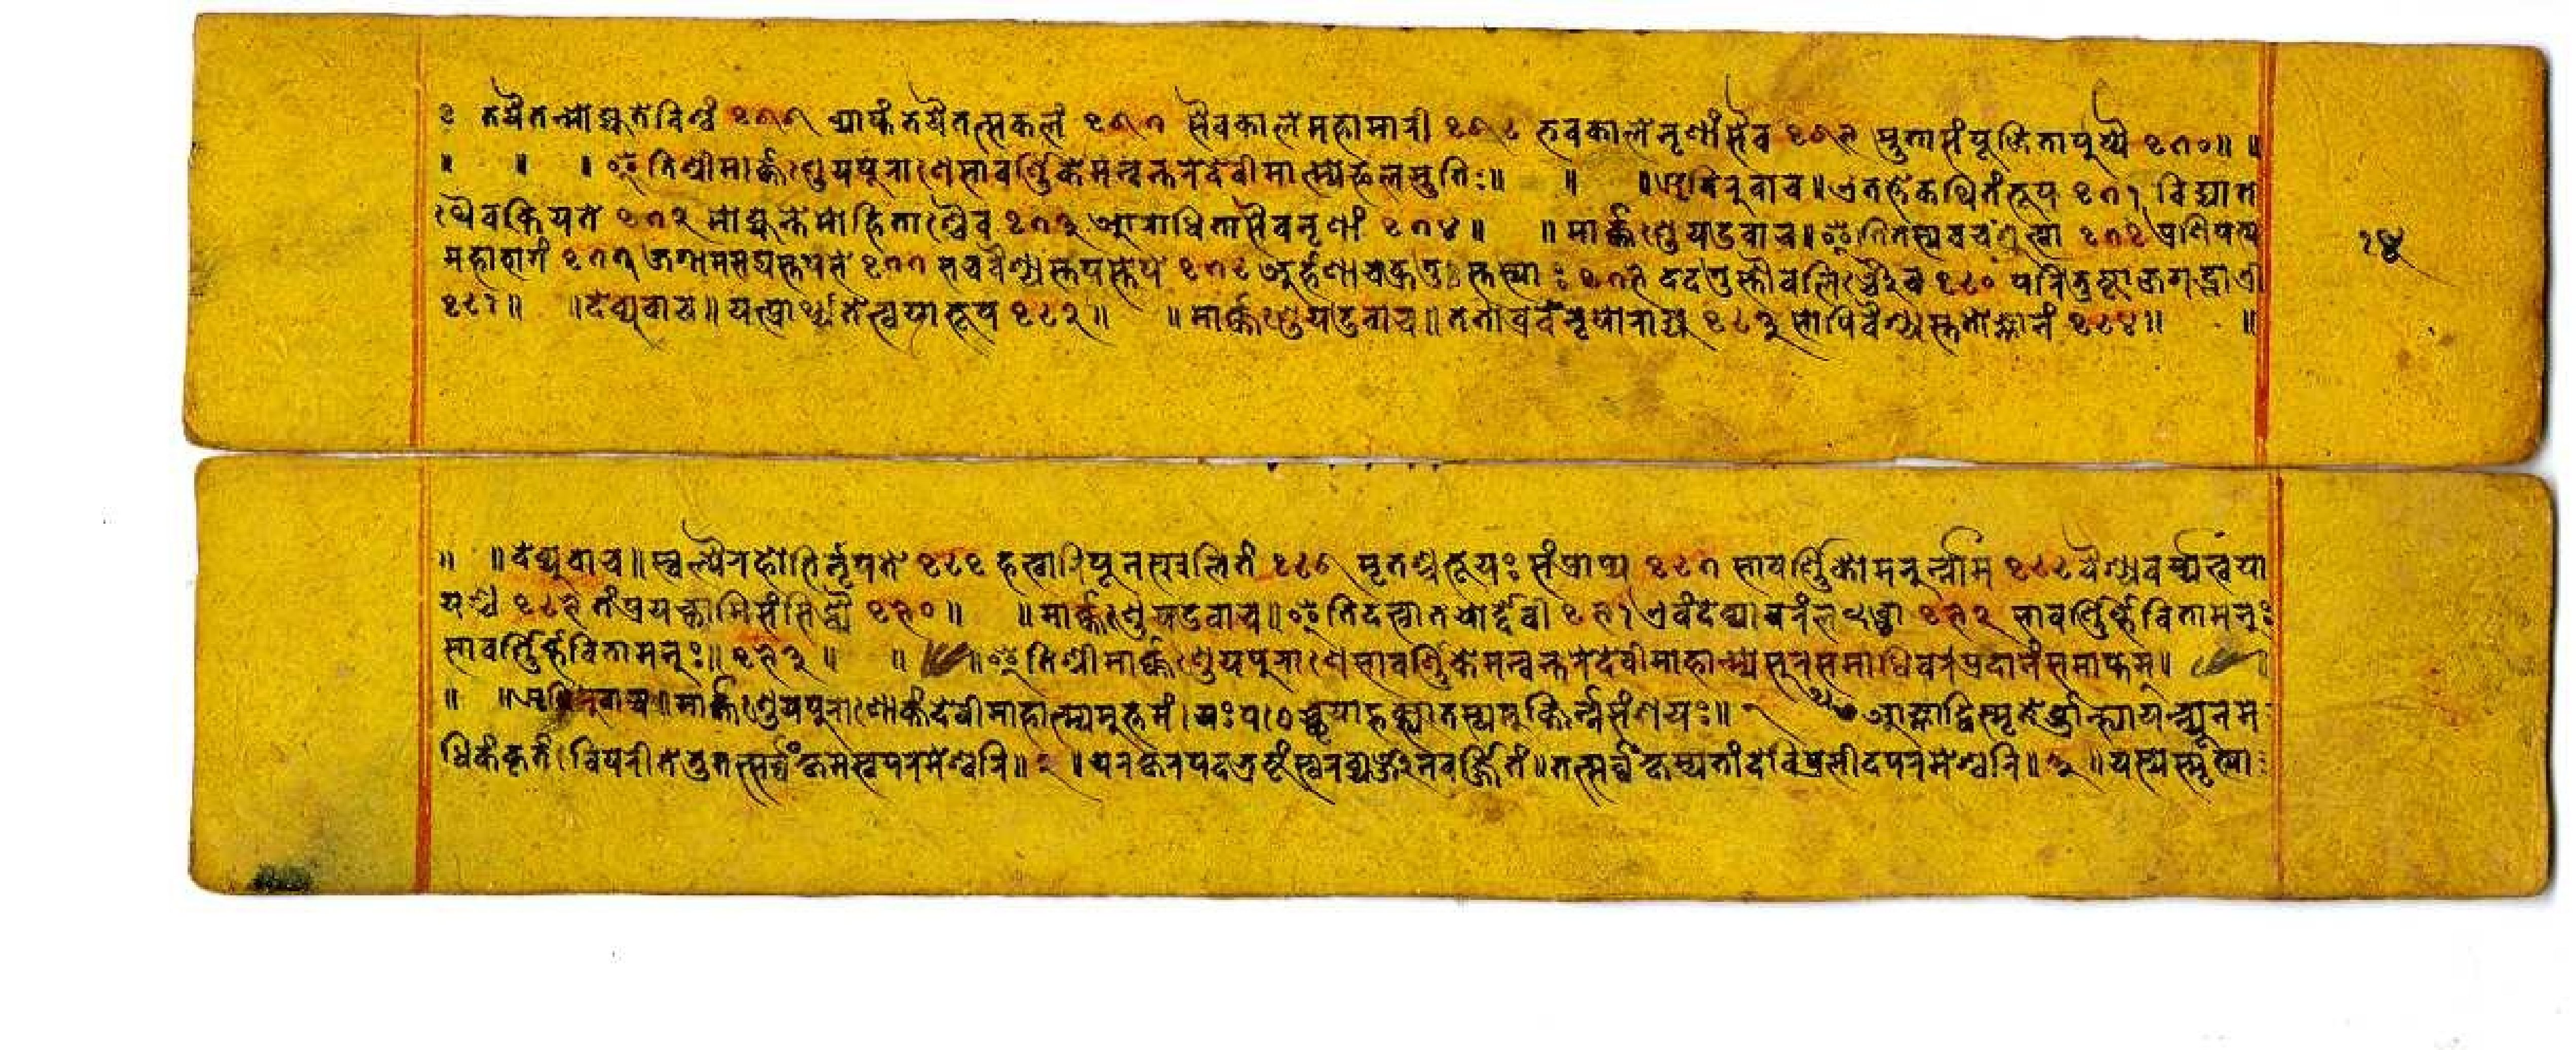 ५ तयैतन्मोह्यतेविश्वं ५६६ व्याप्तंतयैतत्सकलं ५६७ सैवकालेमहामारी ५६८ भवकालेनृणांसैव ५६९ स्तुतासंपूजितापुष्पै ५७०॥ ॥
॥ ॥ ॥ इतिश्रीमार्क्कण्डेयपुराणेसावर्णिकेमन्वन्तरेदेवीमात्म्येफलस्तुतिः॥ ॥ ॥ऋषिरुवाच॥एतत्तेकथितंभूप ५७१ विद्यात
थैवक्रियते ५७२ मोह्यन्तेमोहिताश्चैव ५७३ आराधितासैवनृणां ५७४॥ ॥मार्क्कण्डेयउवाच॥इतितस्यवचःश्रुत्वा ५७५ प्रणिपत्य
महाभागं ५७६ जगामसद्यस्तपसे ५७७ सचवैश्यस्तपस्तेपे ५७८ अर्हणाञ्चक्रतुस्तस्याः ५७९ ददतुस्तौवलिञ्चैव ५८० परितुष्टाजगद्धात्री
५८१॥ ॥देव्युवाच॥यत्प्रार्थ्यतेत्वयाभूप ५८२॥ ॥मार्क्कण्डेयउवाच॥ततोवव्रेनृपोराज्य ५८३ सोपिवैश्यस्ततोज्ञानं ५८४॥ ॥
१४
॥ ॥देव्युवाच॥स्वल्पैरहोभिर्नृपते ५८५ हत्वारिपूनस्खलितं ५८६ मृतश्चभूयः संप्राप्य ५८७ सावर्णिकोमनुर्न्नाम ५८८ वैश्यवर्य्यत्वया
यश्च ५८९ तंप्रयच्छामिसंसिद्ध्यै ५९०॥ ॥मार्क्कण्डेयउवाच॥इतिदत्वातयोर्द्देवी ५९१ एवंदेव्यावरंलब्ध्वा ५९२ सावर्णिर्भवितामनुः
सावर्णिर्भवितामनुः॥५९३॥ ॥ ॥इतिश्रीमार्क्कण्डेयपुराणेसावर्णिकेमन्वन्तरेदेवीमाहात्म्येसुरसमाधिवरप्रदानंसमाप्तम्॥ ॥
॥ ॥ऋषिरुवाच॥मार्क्कण्डेयपुराणोक्तंदेवीमाहात्म्यमुत्तमं।यःपठेच्छ्रद्धयाभक्त्यातस्यमुक्तिर्न्नसंशयः॥ १ आज्ञाद्विस्मृतेर्भ्रान्त्यायन्न्यूनम
धिकंकृतं।विपरीतेतुतत्सर्व्वंक्षमस्वपरमेश्वरि॥२॥यदक्षरपदभ्रष्टंस्वरव्यञ्जनवर्ज्जितं॥तत्सर्व्वंक्षम्यतांदेविप्रसीदपरमेश्वरि॥३॥यस्यस्मृत्या